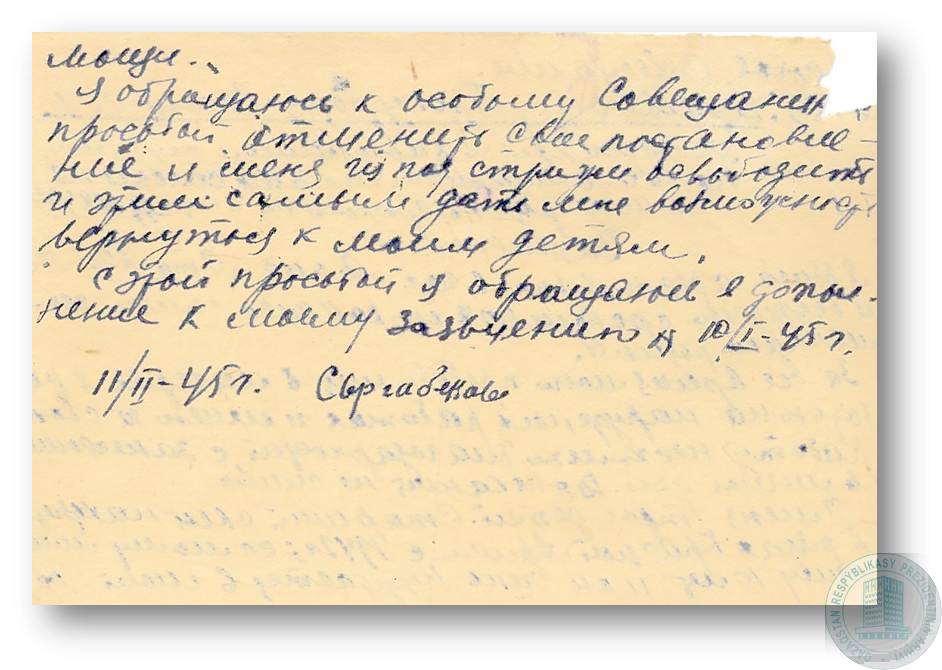 мощи.
Я обращаюсь к особому Совещанию
просьбой отменить свое постановле-
ние и меня из под стражи освободить
и этим самым дать мне возможность
вернуться к моим детям.
с этой просьбой я обращаюсь в допол-
нение к моему заявлению 10/II-45г.
11/II-45г. Сыргабекова
QAZAQSTAN RESPÝBLIKASY PREZIDENTINIŃ ARHIVI